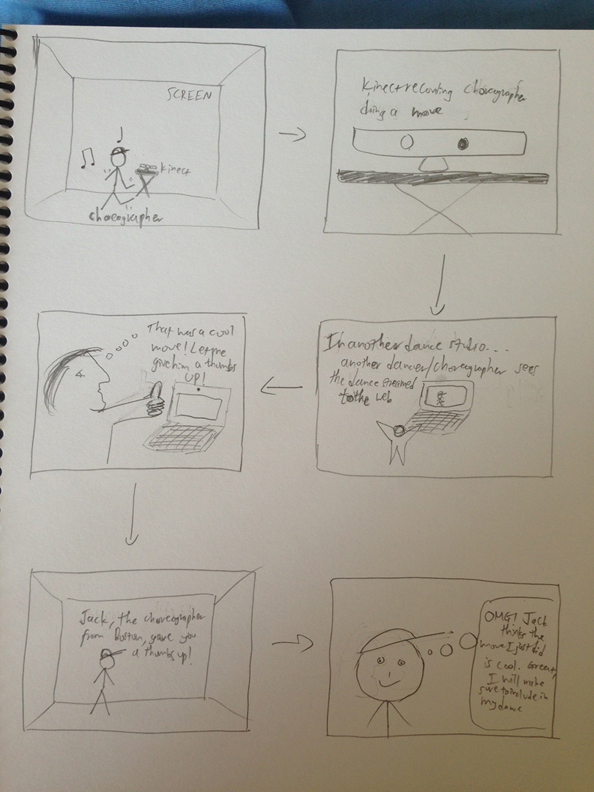 SCREEN
Kinect
choreographer
Kinect recording choreographer
doing a move
In another dance studio...
another dancer/choreographer sees
the dance streamed
to the web
That was a cool
move! Let me
give him a thumbs
UP!
Jack, the choreographer
from Boston, gave you
a thumbs up!
OMG! Jack
thinks the
move I just did
is cool. Great,
I will make
sure to include in
my dance